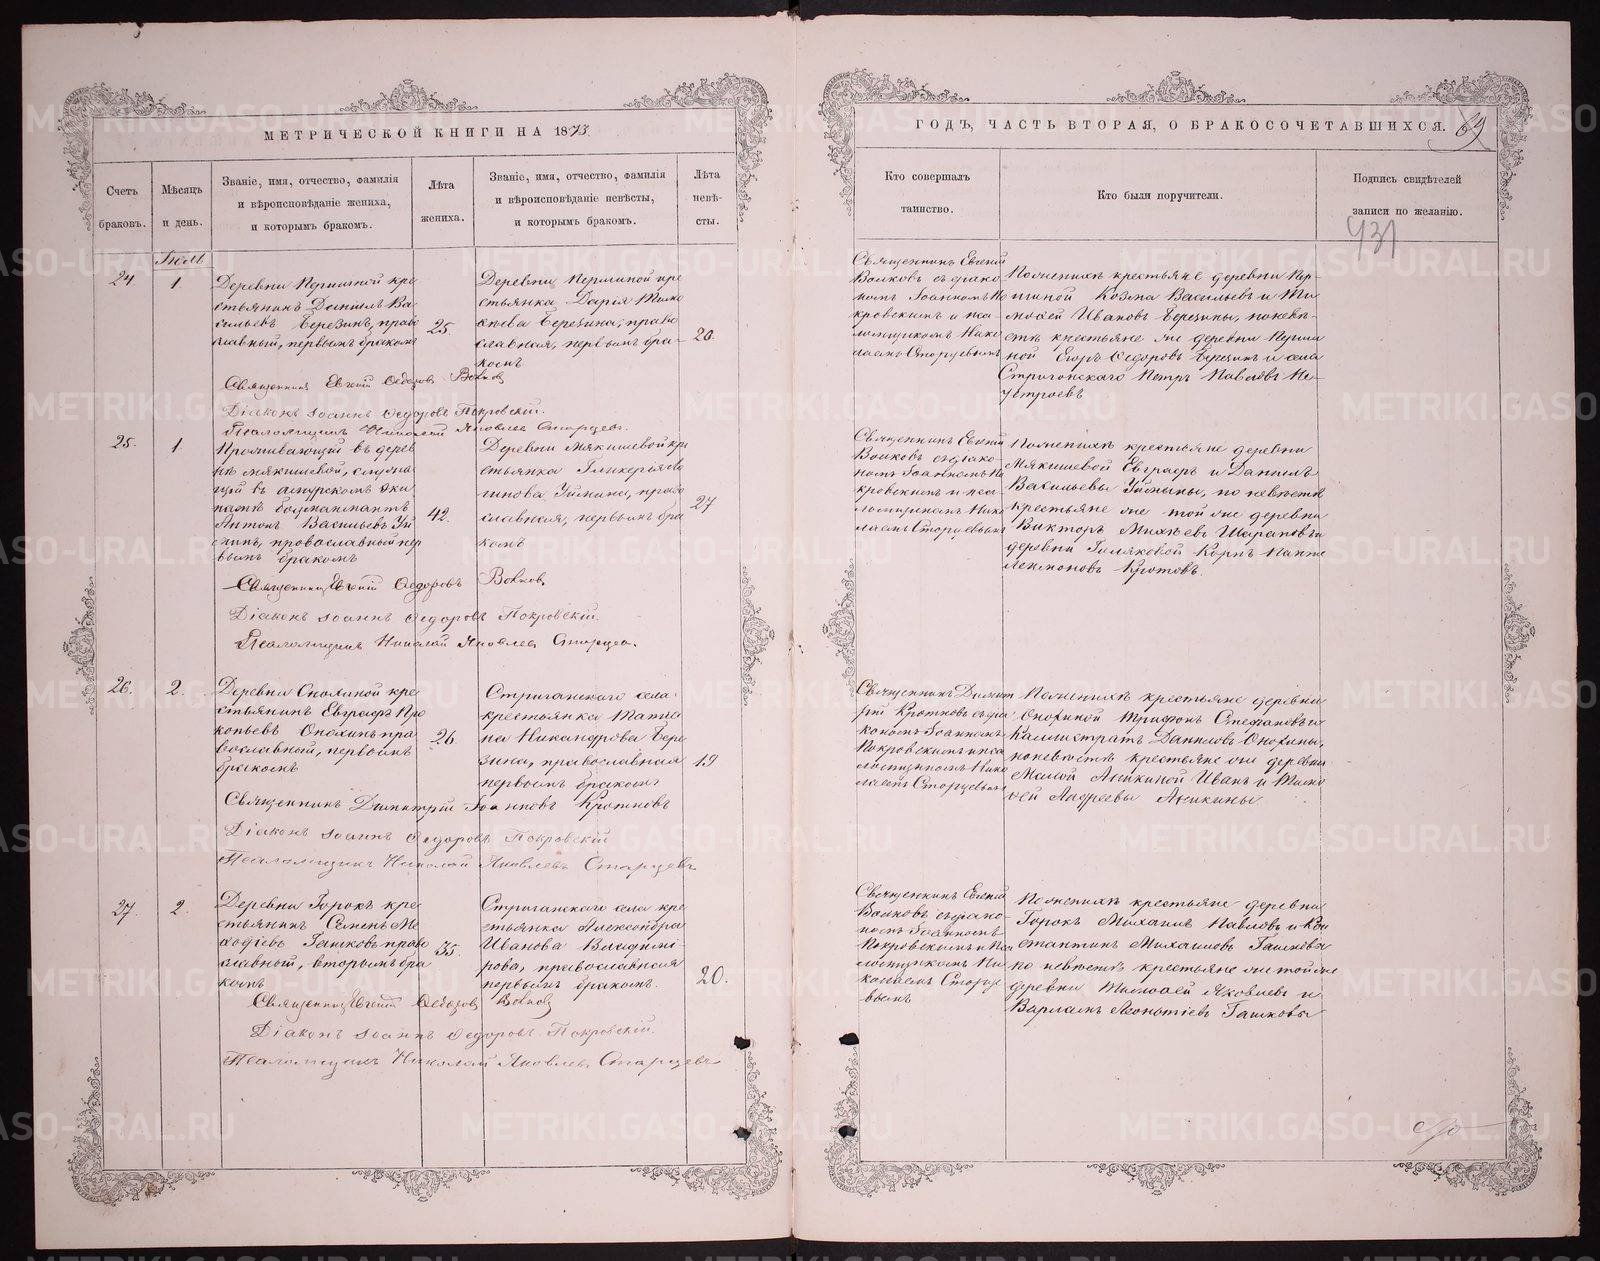 МЕТРИЧЕСКОЙ КНИГИ НА 1873
ГОДЪ, ЧАСТЬ ВТОРАЯ, О БРАКОСОЧЕТАВШИХСЯ. 69
Счетъ браковъ.
Мѣсяцъ и день.
Званіе, имя, отчество, фамилія
и вѣроисповѣданіе жениха,
и которымъ бракомъ.
Лѣта
жениха.
Званіе, имя, отчество, фамилія
и вѣроисповѣданіе невѣсты,
и которымъ бракомъ.
Лѣта
невѣ-
сты.
Кто совершалъ
таинство.
Кто были поручители.
Подпись свидѣтелей
записи по желанію.
431
24
1
Деревни кре
стьянинъ Даніилъ Ва
сильевъ Березинъ, право
славный, первымъ бракомъ
25.
Деревни кре
стьянка Дарія Тимо
Березина, право
славная, первымъ бра-
комъ
20.
Священникъ Евгеній
Волковъ съ діако
номъ Іоанномъ По
кровскимъ и пса
ломщикомъ Нико
лаемъ Старцевымъ
По женихѣ крестьяне деревни
Козма Васильевъ и Ти
мофей Ивановъ Березины, по невѣ
стѣ крестьяне же деревни
Егоръ Федоровъ Березинъ и села
Стриганскаго Петръ Павловъ
Священникъ Евгеній Федоровъ Волковъ
Діаконъ Іоаннъ Федоровъ Покровскій.
Псаломщикъ Николай Яковлевъ Старцевъ.
25.
1
Проживающій въ дерев
нѣ Мякишевой, служа
щій въ амурскомъ эки
пажѣ
Антонъ Васильевъ
православный пер
вымъ бракомъ
42.
Деревни Мякишевой кре
стьянка Гликерія
право
славная, первымъ бра
комъ
27
Священникъ Евгеній
Волковъ съ діако
номъ Іоанномъ По
кровскимъ и пса
ломщикомъ Нико
лаемъ Старцевымъ
По женихѣ крестьяне деревни
Мякишевой Евграфъ и Даніилъ
Васильевы по невѣстѣ
крестьяне же той же деревни
Викторъ Михѣевъ Шараповъ и
деревни Карпъ Панте
леимоновъ Кротовъ.
Священникъ Евгеній Федоровъ Волковъ
Діаконъ Іоаннъ Федоровъ Покровскій.
Псаломщикъ Николай Яковлевъ Старцевъ.
26.
2.
Деревни кре
стьянинъ Евграфъ Про
копьевъ пра
вославный, первымъ
бракомъ
26.
Стриганскаго села
крестьянка Татья
на Никандрова Бере
зина, православная
первымъ бракомъ
19
Священникъ Димит
рій Кротковъ съ діа
кономъ Іоанномъ
Покровскимъ и пса
ломщикомъ Нико
лаемъ Старцевымъ
По женихѣ крестьяне деревни
Трифонъ Степановъ и
Каллистратъ Даниловъ
по невѣстѣ крестьяне же деревни
Малой Аникиной Иванъ и Тимо
фей Андреевы Аникины
Священникъ Димитрій Іоанновъ Кротковъ
Діаконъ Іоаннъ Федоровъ Покровскій
Псаломщикъ Николай Яковлевъ Старцевъ
27.
2.
Деревни Горокъ кре
стьянинъ Семенъ Ме
фодіевъ Гашковъ право
славный, вторымъ бра
комъ
35.
Стриганскаго села кре
стьянка Александра
Иванова Владимі
рова, православная
первымъ бракомъ.
20.
Священникъ Евгеній
Волковъ съ діако
номъ Іоанномъ
Покровскимъ и пса
ломщикомъ Ни
колаемъ Старце
вымъ
По женихѣ крестьяне деревни
Горокъ Михаилъ Павловъ и Кон
стантинъ Михаиловъ Гашковы
по невѣстѣ крестьяне же той же
деревни Тимофей Яковлевъ и
Варламъ Леонтіевъ Гашковы
Священникъ Евгеній Федоровъ Волковъ
Діаконъ Іоаннъ Федоровъ Покровскій.
Псаломщикъ Николай Яковлевъ Старцевъ
METRIKI.GASO-URAL.RU